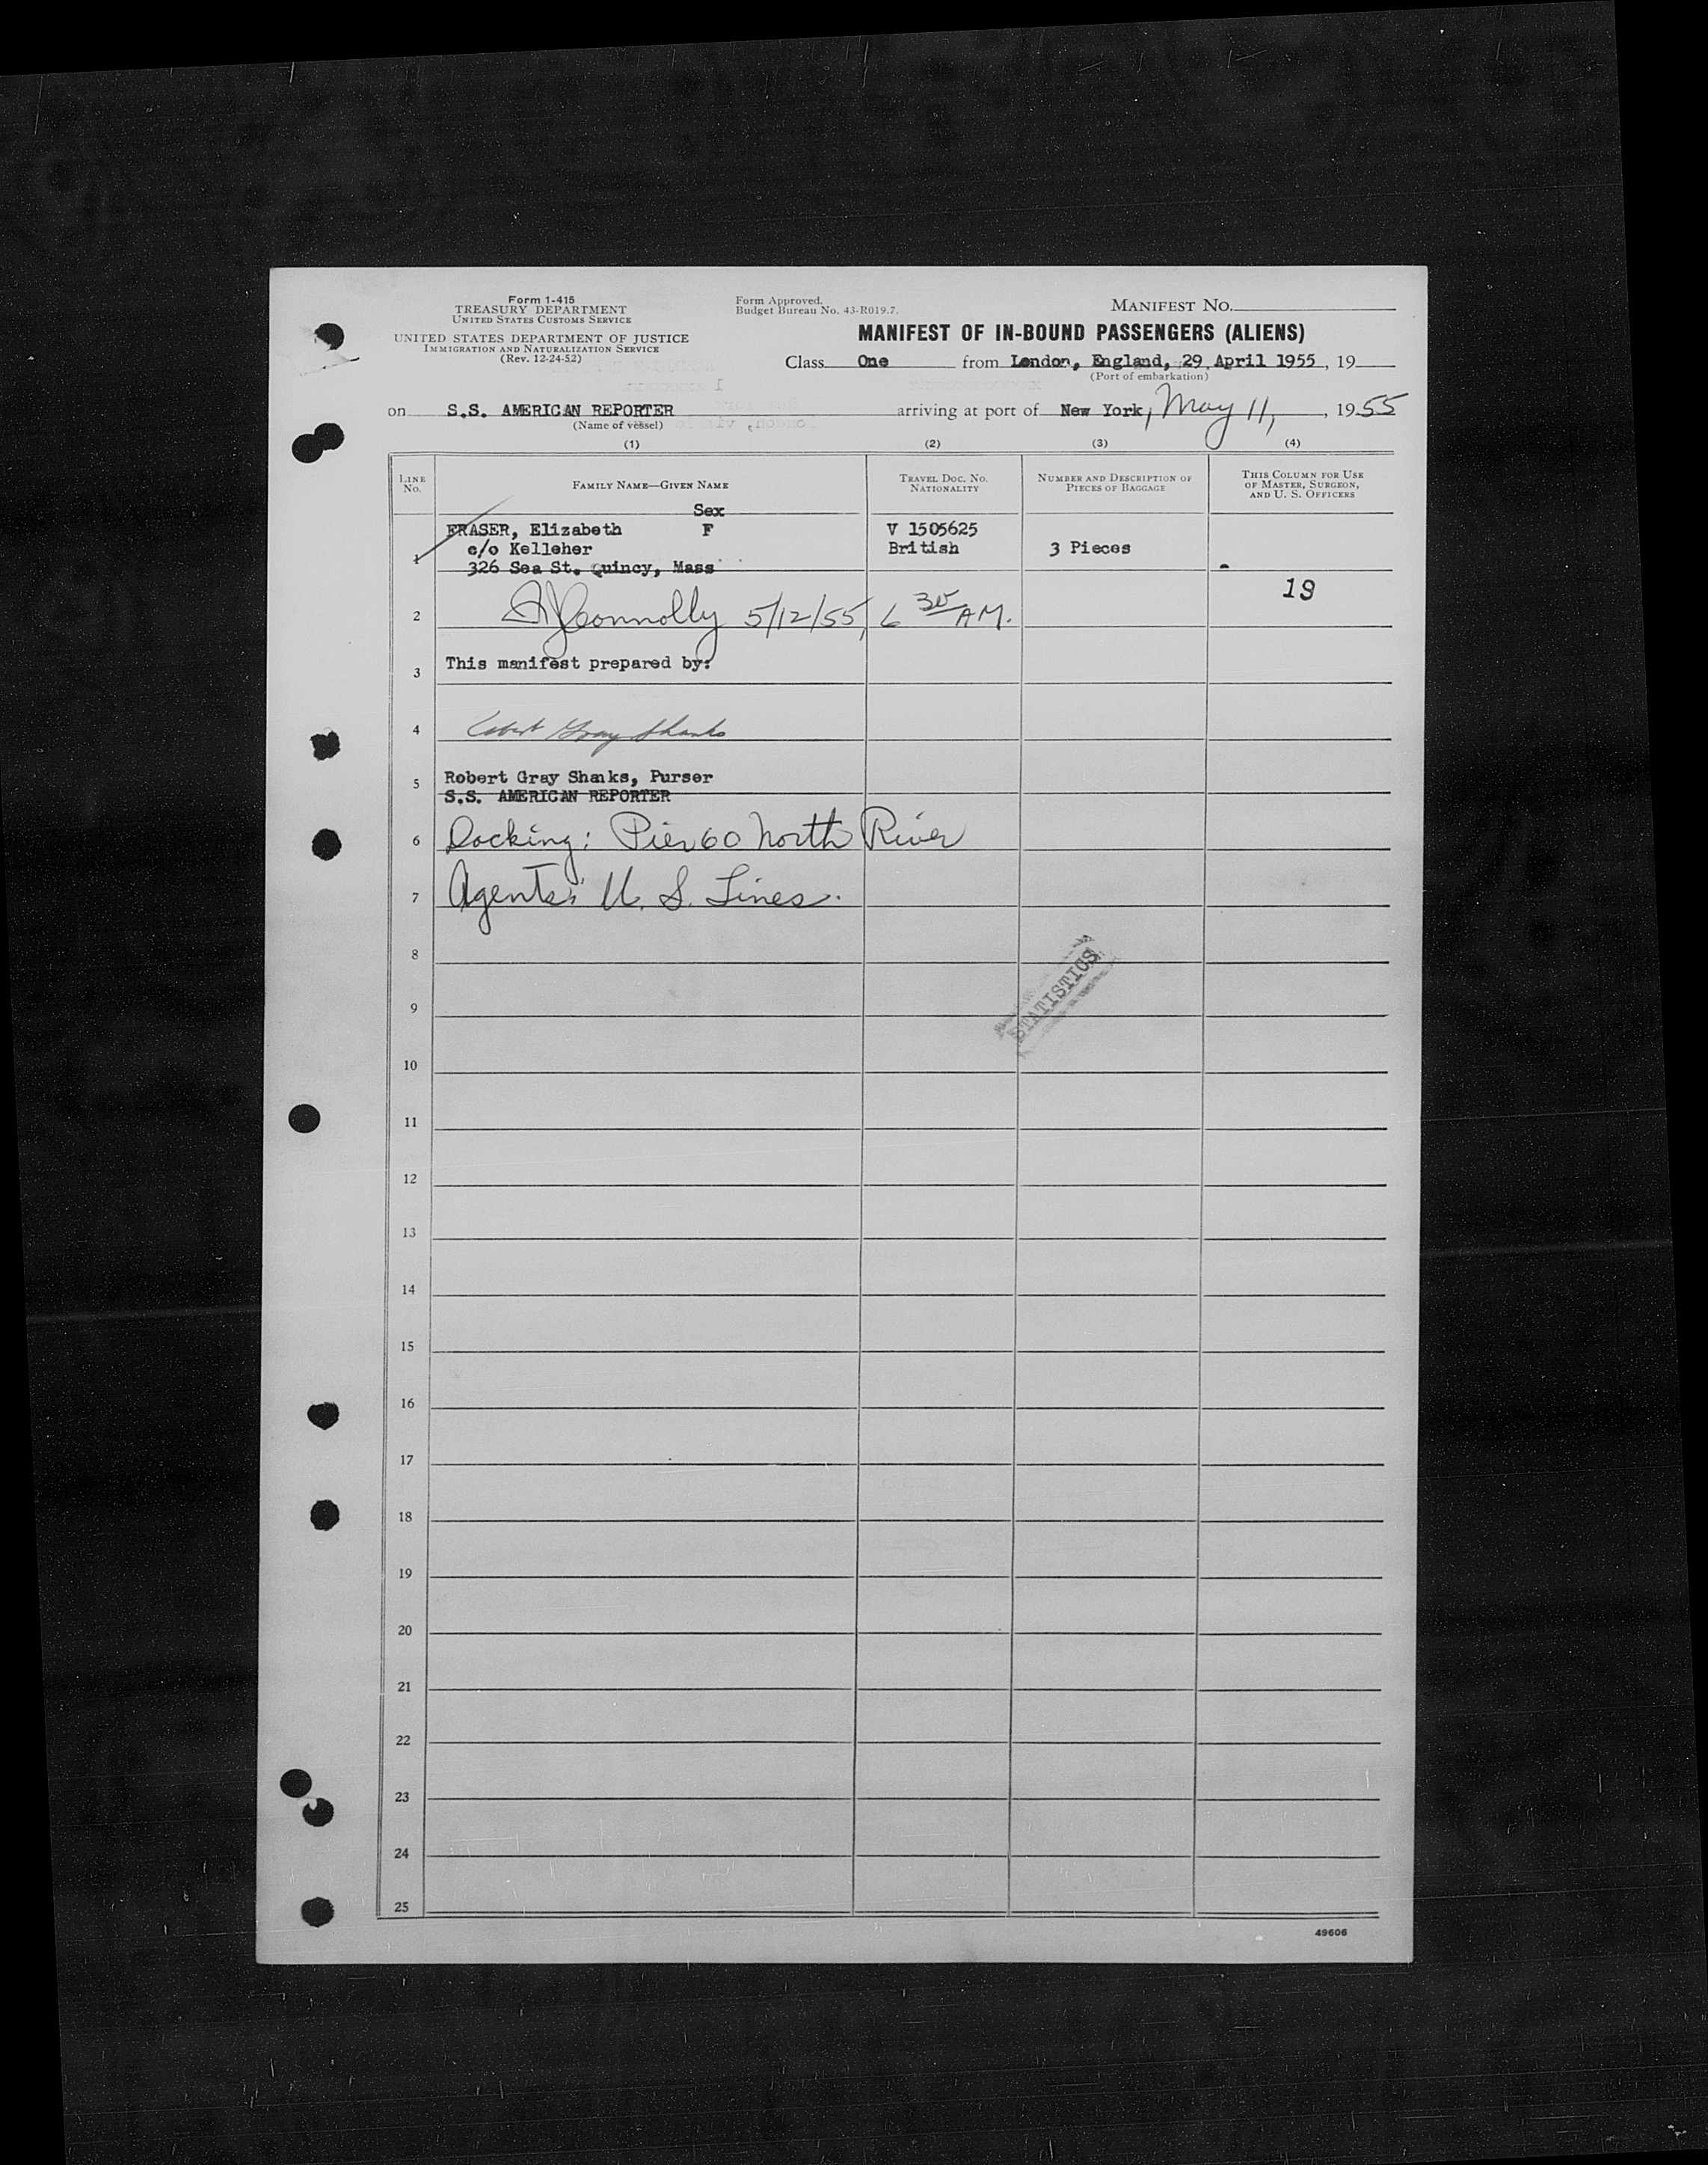 Form 1-415
TREASURY DEPARTMENT
UNITED STATES CUSTOMS SERVICE
UNITED STATES DEPARTMENT OF JUSTICE
IMMIGRATION AND NATURALIZATION SERVICE
(Rev. 12-24-52)
Form Approved.
Budget Bureau No. 43-R019.7.
MANIFEST NO.
MANIFEST OF IN-BOUND PASSENGERS (ALIENS)
Class One from London, England, 29 April 1955, 19
(Port of embarkation)
on S.S. AMERICAN REPORTER arriving at port of New York, May 11, , 1955
(Name of vessel)
(1) (2) (3) (4)
LINE NO. FAMILY NAME—GIVEN NAME TRAVEL DOC. NO. NATIONALITY NUMBER AND DESCRIPTION OF PIECES OF BAGGAGE THIS COLUMN FOR USE OF MASTER, SURGEON, AND U. S. OFFICERS
Sex
FRASER, Elizabeth F V 1505625
1 c/o Kelleher British 3 Pieces
326 Sea St. Quincy, Mass
19
2 Connolly 5/12/55, 6 30 AM.
3 This manifest prepared by:
4 Robert Gray Shanks
5 Robert Gray Shanks, Purser
S.S. AMERICAN REPORTER
6 Docking: Pier 60 North River
7 Agents: U. S. Lines.
8
STATISTICS
9
10
11
12
13
14
15
16
17
18
19
20
21
22
23
24
25
49606